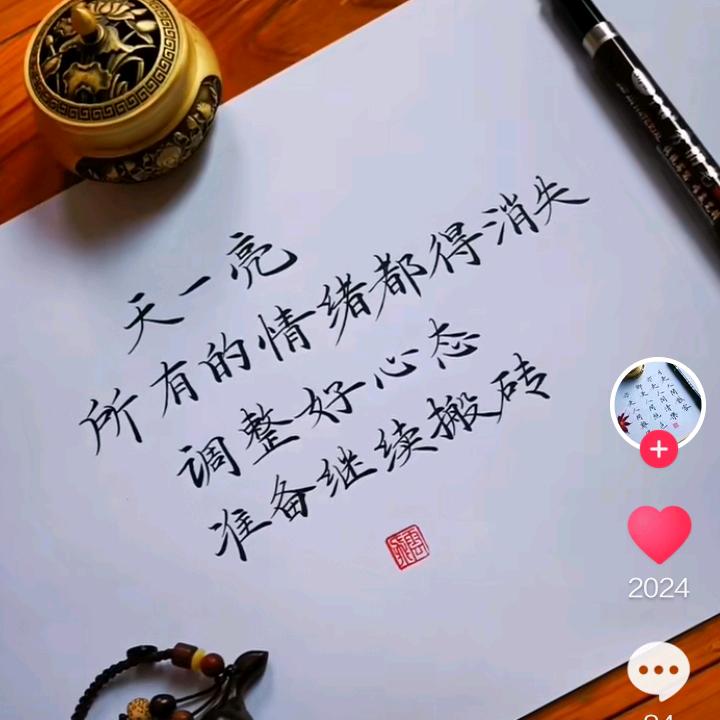 天一亮
所有的情绪都得消失
调整好心态
准备继续搬砖
2024